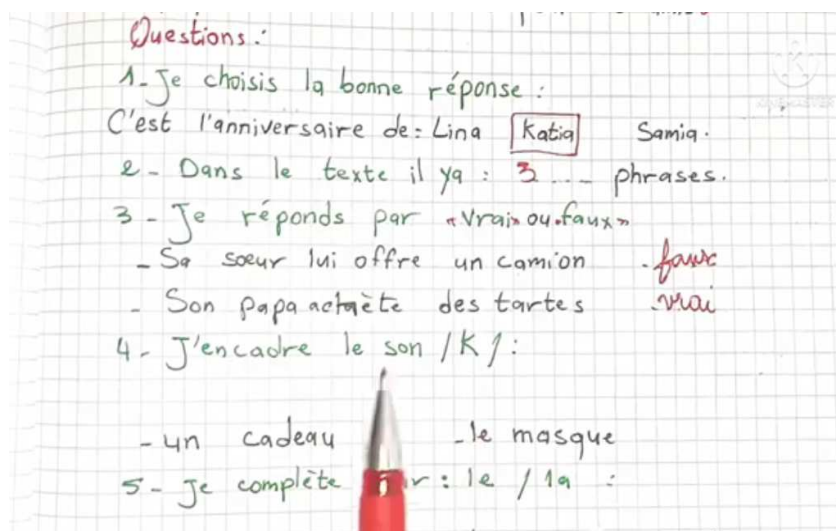 Questions:
1- Je choisis la bonne réponse :
C'est l'anniversaire de: Lina Katia Samia.
2- Dans le texte il ya : 3 ... phrases.
3- Je réponds par «vrai» ou «faux»
- Sa soeur lui offre un camion - faux
- Son papa achète des tartes - vrai
4- J'encadre le son /K/ :
- un cadeau - le masque
5- Je complète : le / la :